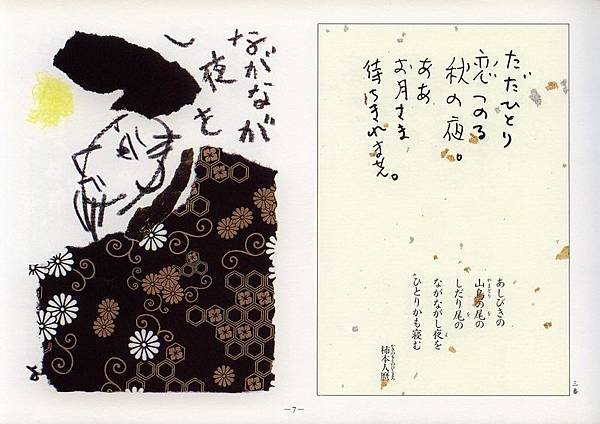 ながなが
し夜を
ただひとり
恋つのる
秋の夜。
ああ
お月さま
待ちきれません。
あしびきの
山鳥の尾の
しだり尾の
ながながし夜を
ひとりかも寝む
柿本人麿
三番
—7—